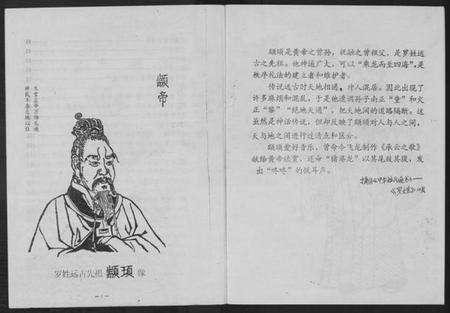 颛帝
罗姓远古先祖 颛顼 像
颛顼是黄帝之曾孙，祝融之曾祖父，是罗姓远
古之先祖。他神通广大，可以“乘龙而至四海”。是
秩序礼法的建立者和维护者。
传说远古时天地相通，神人混居。因此出现了
许多麻烦和混乱，于是他遣调孙子南正“重”和火
正“黎”“绝地天通”，把天地间的道路隔断。这
虽然是神话传说，但却反映了颛顼对人与人之间，
天与地之间进行过清点和区分。
颛顼爱好音乐，曾命令飞龙制作《承云之歌》
献给黄帝欣赏，还命“猪婆龙”以其尾鼓其腹，发
出“咚咚”的鼓耳声。